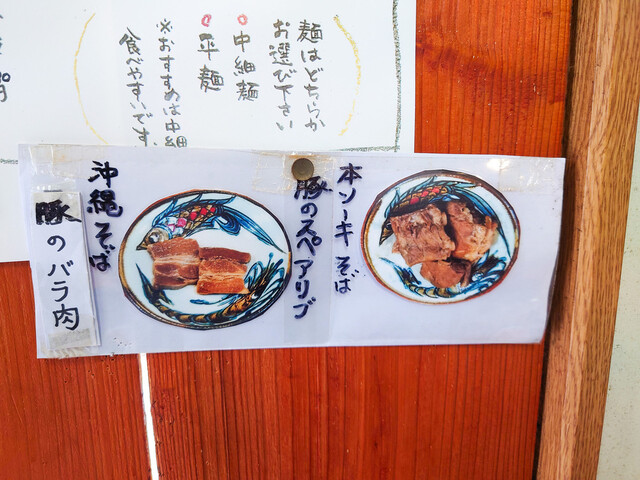 麺はどちらか
お選び下さい
中細麺
平麺
※おすすめは中細
食べやすいです。
本ソーキそば
豚のスペアリブ
沖縄そば
豚のバラ肉